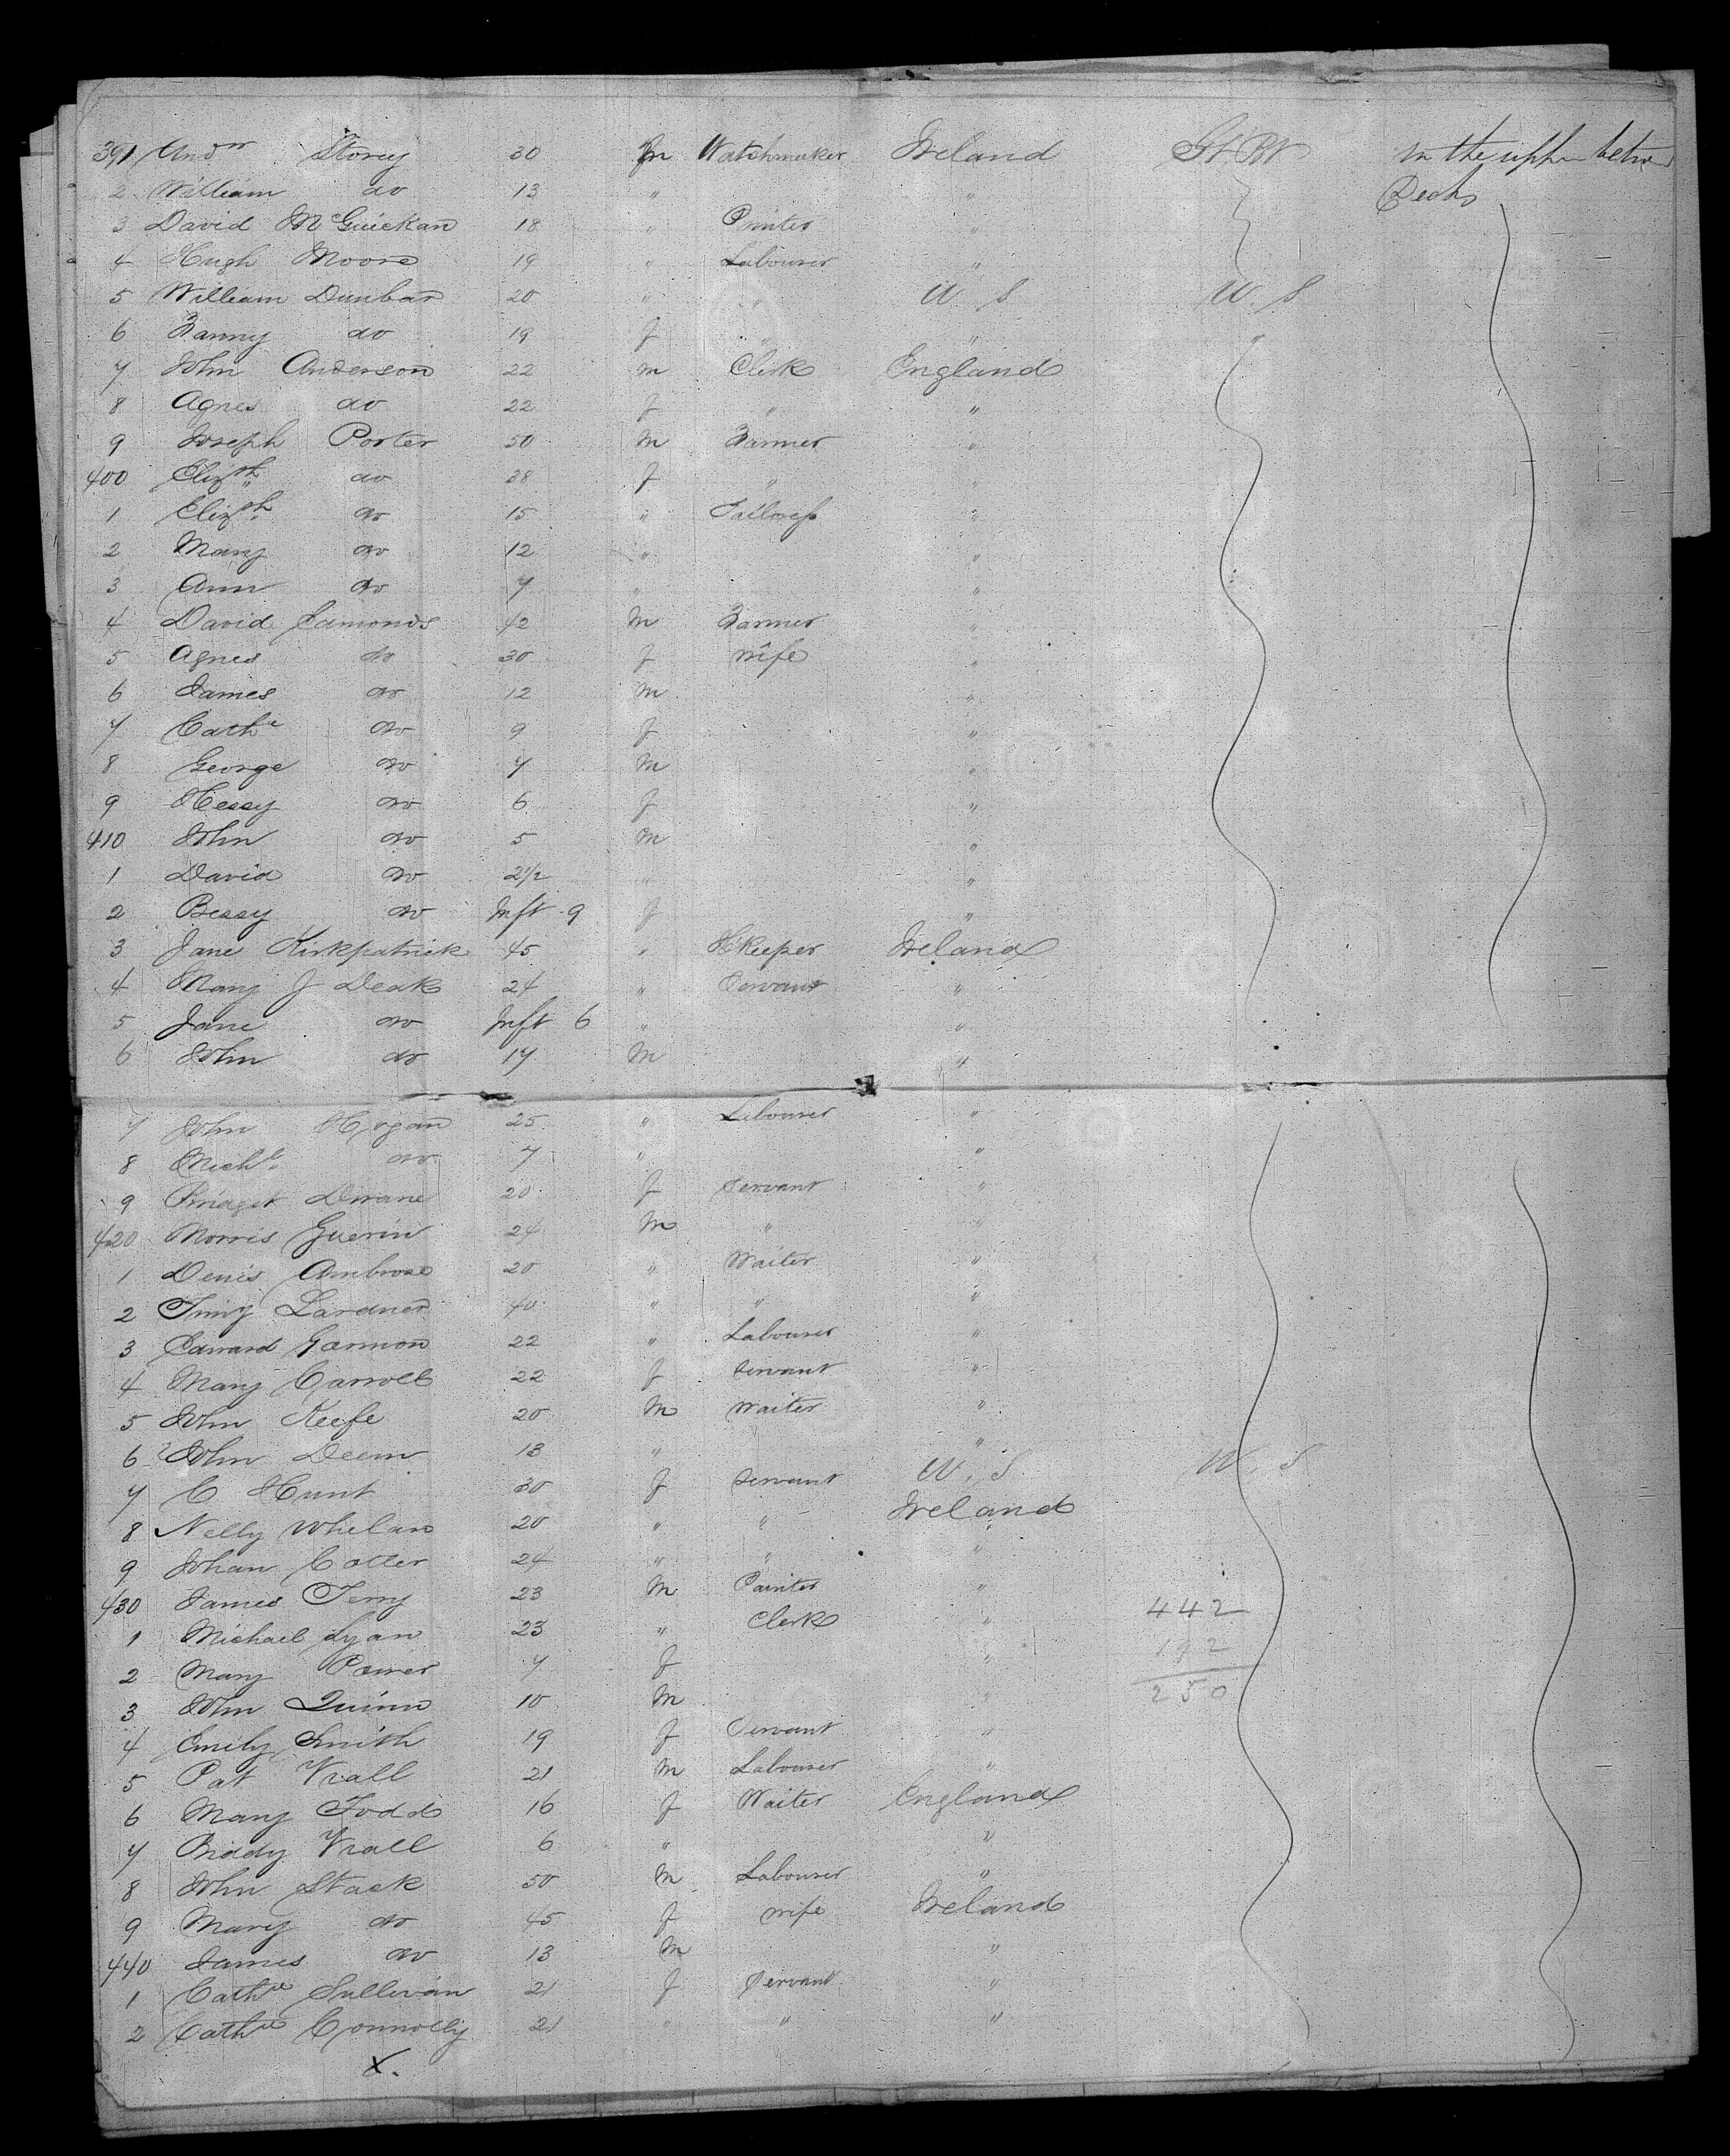 391 Andw Storey 30 m Watchmaker Ireland Gt Bt In the upper betwn
2 William do 13 " " Decks
3 David McGuickan 18 " Printer "
4 Hugh Moore 19 " Labourer "
5 William Dunbar 20 " " U S U S
6 Fanny do 19 f " " "
7 John Anderson 22 m Clerk England
8 Agnes do 22 f " "
9 Joseph Porter 50 m Farmer "
400 Elizth do 38 f " "
1 Elizth do 15 " Tailoress "
2 Mary do 12 " "
3 Ann do 7 " "
4 David Edmonds 42 m Farmer "
5 Agnes do 30 f wife "
6 James do 12 m "
7 Cathe do 9 f "
8 George do 7 m "
9 Hessy do 6 f "
410 John do 5 m "
1 David do 2½ " "
2 Bessy do Inft 9 f "
3 Jane Kirkpatrick 45 " HKeeper Ireland
4 Mary J Deak 24 " Servant "
5 Jane do Inft 6 " "
6 John do 17 m "
7 John Hogan 25 " Labourer "
8 Michl do 7 " "
9 Bridget Dwane 20 f Servant "
420 Morris Guerin 24 m " "
1 Denis Ambrose 20 " Waiter "
2 Timy Lardner 40 " " "
3 Edward Garmon 22 " Labourer "
4 Mary Carroll 22 f Servant "
5 John Keefe 20 m Waiter "
6 John Deem 13 " "
7 C Hunt 30 f Servant U. S U. S
8 Nelly Whelan 20 " " Ireland
9 Johan Cotter 24 " " "
430 James Terry 23 m Painter " 442
1 Michael Lyan 23 " Clerk " 192
2 Mary Power 7 f " 250
3 John Quinn 10 m "
4 Emily Smith 19 f Servant "
5 Pat Wall 21 m Labourer "
6 Mary Todd 16 f Waiter England
7 Biddy Wall 6 " "
8 John Stack 50 m Labourer "
9 Mary do 45 f wife Ireland
440 James do 13 m "
1 Cathne Sullivan 21 f Servant "
2 Cathne Connolly 21 " " "
X.